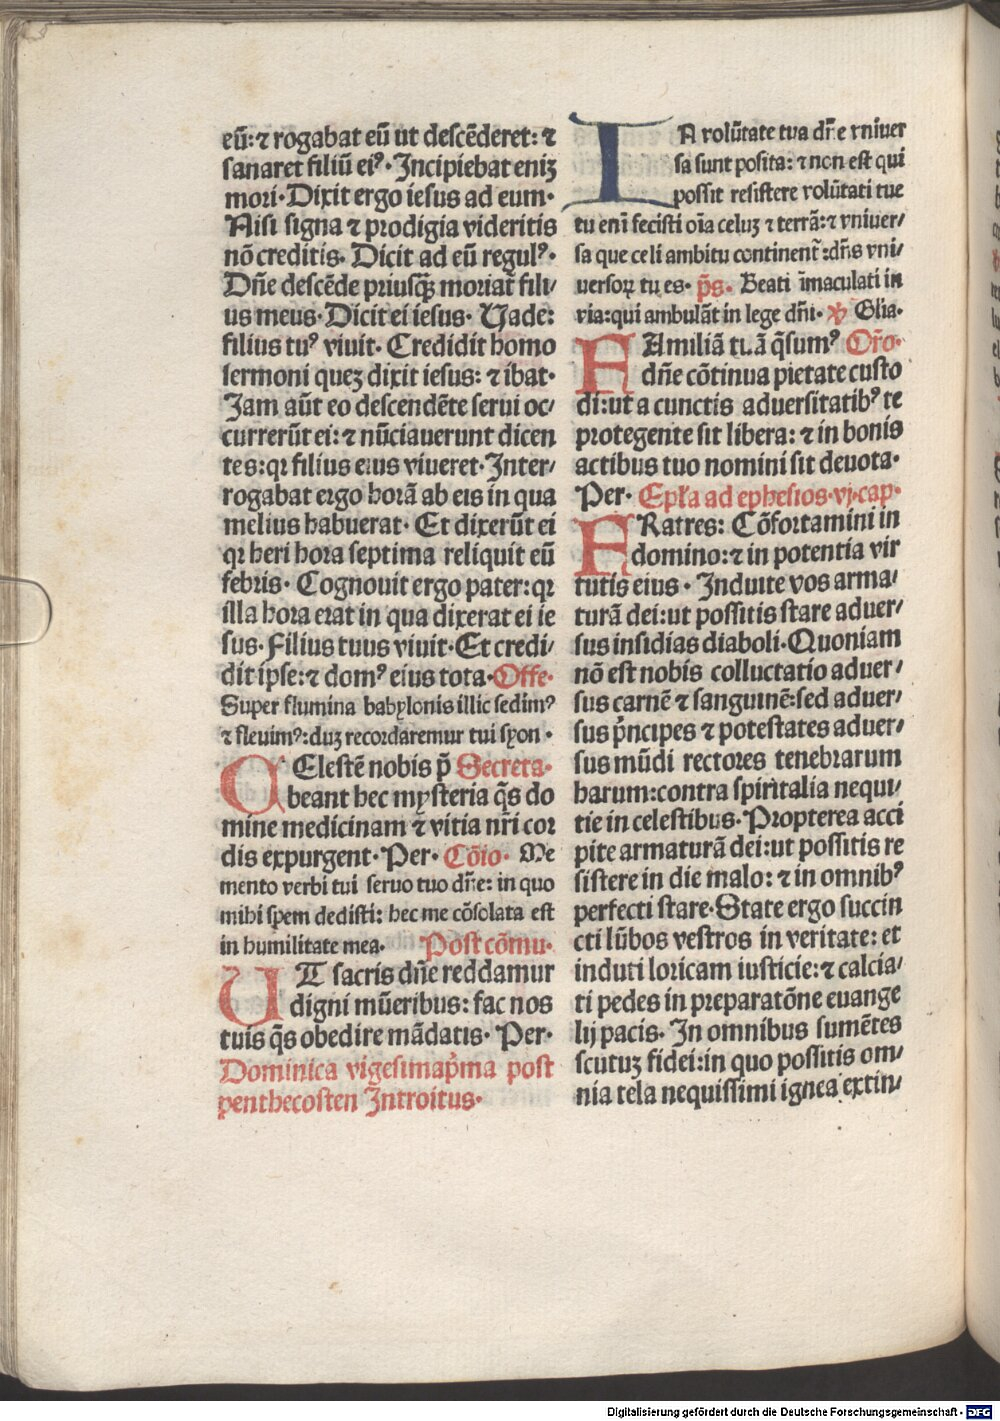 eū: ⁊ rogabat eū ut descēderet: ⁊
sanaret filiū eiꝰ· Incipiebat eniꝫ
mori· Dixit ergo iesus ad eum·
Nisi signa ⁊ prodigia videritis
nō creditis· Dicit ad eū regulꝰ·
Dn̄e descēde priusqꝫ moriat᷑ fili⸗
us meus· Dicit ei iesus· Uade:
filius tuꝰ viuit· Credidit homo
sermoni queꝫ dixit iesus: ⁊ ibat·
Jam aūt eo descendēte serui oc⸗
currerūt ei: ⁊ nūciauerunt dicen
tes: qꝛ filius eius viueret· Inter⸗
rogabat ergo horā ab eis in qua
melius habuerat· Et dixerūt ei
qꝛ heri hora septima reliquit eū
febris· Cognouit ergo pater: qꝛ
illa hora erat in qua dixerat ei ie
sus· Filius tuus viuit· Et credi⸗
dit ipse: ⁊ domꝰ eius tota· Offe·
Super flumina babylonis illic sedimꝰ
⁊ fleuimꝰ: duꝫ recordaremur tui syon·
CElestē nobis p̄ Secreta·
beant hec mysteria q̄s do
mine medicinam ⁊ vitia nr̄i cor
dis expurgent· Per· Cōio· Me
mento verbi tui seruo tuo dn̄e: in quo
mihi spem dedisti: hec me cōsolata est
in humilitate mea· Post cōmu·
UT sacris dn̄e reddamur
digni mūeribus: fac nos
tuis q̄s obedire mādatis· Per·
Dominica vigesimap̄ma post
penthecosten Introitus·
IN volūtate tua dn̄e vniuer
sa sunt posita: ⁊ non est qui
possit resistere volūtati tue
tu enī fecisti oīa celuꝫ ⁊ terrā: ⁊ vniuer⸗
sa que celi ambitu continent᷑: dn̄s vni⸗
uersoꝝ tu es· p̄s· Beati īmaculati in
via: qui ambulāt in lege dn̄i· ℣ Glīa·
FAmiliā tuā q̄sumꝰ Orō·
dn̄e cōtinua pietate custo
di: ut a cunctis aduersitatibꝰ te
protegente sit libera: ⁊ in bonis
actibus tuo nomini sit deuota·
Per· Epl̄a ad ephesios· vj· cap·
FRatres: Cōfortamini in
domino: ⁊ in potentia vir
tutis eius· Induite vos arma⸗
turā dei: ut possitis stare aduer⸗
sus insidias diaboli· Quoniam
nō est nobis colluctatio aduer⸗
sus carnē ⁊ sanguinē: sed aduer⸗
sus p̄ncipes ⁊ potestates aduer⸗
sus mūdi rectores tenebrarum
harum: contra spiritalia nequi⸗
tie in celestibus· Propterea acci
pite armaturā dei: ut possitis re
sistere in die malo: ⁊ in omnibꝰ
perfecti stare· State ergo succin
cti lūbos vestros in veritate: et
induti loricam iusticie: ⁊ calcia⸗
ti pedes in preparatōne euange
lij pacis· In omnibus sumētes
scutuꝫ fidei: in quo possitis om⸗
nia tela nequissimi ignea extin⸗
Digitalisierung gefördert durch die Deutsche Forschungsgemeinschaft - DFG